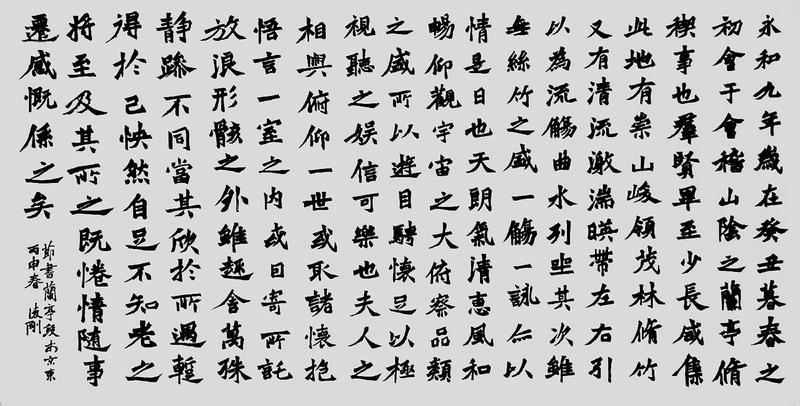 永和九年歲在癸丑暮春之
初會于會稽山陰之蘭亭脩
禊事也羣賢畢至少長咸集
此地有崇山峻領茂林脩竹
又有清流激湍暎帶左右引
以為流觴曲水列坐其次雖
無絲竹之盛一觴一詠亦以
情是日也天朗氣清惠風和
暢仰觀宇宙之大俯察品類
之盛所以遊目騁懷足以極
視聽之娛信可樂也夫人之
相與俯仰一世或取諸懷抱
悟言一室之內或因寄所託
放浪形骸之外雖趣舍萬殊
靜躁不同當其欣於所遇暫
得於己怏然自足不知老之
將至及其所之既惓情隨事
遷感慨係之矣
節書蘭亭段於京東
丙申春 俊剛